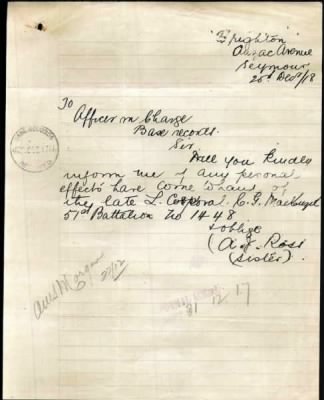 "Brighton"
Anzac Avenue
Seymour
26th Decr/18
To
Officer in Charge
Base records.
Sir
Will you kindly
inform me if any personal
effects have come of
the late L. Corporal. R. G.
57th Battalion No 1448
& oblige
(A. J. Ross
(Sister).
27/12
31 12 17